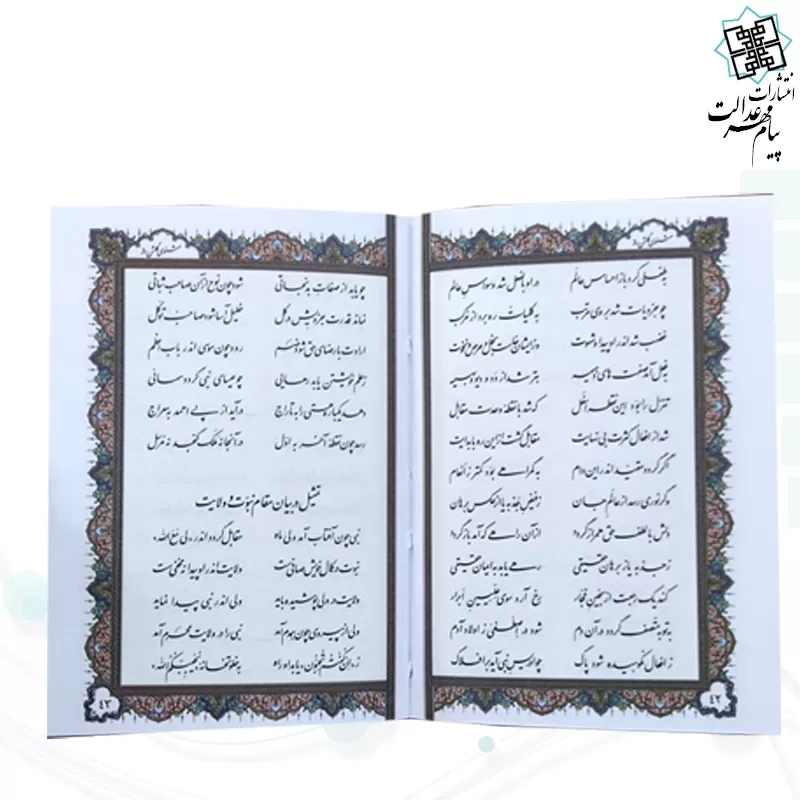 انتشارات
پیام مهر عدالت
مثنوی گلشن راز
به طفلی کرد باز احساس عالم در او بالفعل شد وسواس عالم
چو جزویات شد بر وی مرتب به کلیات ره برد از مرکب
غضب شد اندر او پیدا و شهوت وز ایشان خاست بخل و حرص و نخوت
به فعل آمد صفت های ذمیمه بتر شد از دد و دیو و بهیمه
تنزل را بود این نقطه اسفل که شد با نقطه وحدت مقابل
شد از افعال کثرت بی نهایت مقابل گشت از این رو با بدایت
اگر گردد مقید اندر این دام به گمراهی بود کمتر ز انعام
وگر نوری رسد از عالم جان ز فیض جذبه یا از عکس برهان
دلش با لطف حق همراز گردد از آن راهی که آمد باز گردد
ز جذبه یا ز برهان حقیقی رهی یابد به ایمان حقیقی
کند یک رجعت از سجین فجار رخ آرد سوی علیین ابرار
به توبه متصف گردد در آن دم شود در اصطفی ز اولاد آدم
ز افعال نکوهیده شود پاک چو ادریس نبی آید بر افلاک
۴۲
مثنوی گلشن راز
چو یابد از صفات بد نجاتی شود چون نوح از آن صاحب ثباتی
نماند قدرت جزویش در کل خلیل آسا شود صاحب توکل
ارادت با رضای حق شود ضم رود چون موسی اندر باب اعظم
ز علم خویشتن یابد رهایی چو عیسای نبی گردد سمائی
دهد یکباره هستی را به تاراج درآید از پی احمد به معراج
رسد چون نقطه آخر به اول در آنجا نه ملک گنجد نه مرسل
تمثیل در بیان مقام نبوت و ولایت
نبی چون آفتاب آمد ولی ماه مقابل گردد اندر «لی مع الله»
نبوت در کمال خویش صافی است ولایت اندر او پیدا نه مخفی است
ولایت در ولی پوشیده باید ولی اندر نبی پیدا نماید
ولی از پیروی چون همدم آمد نبی را در ولایت محرم آمد
ز «ان کنتم تحبون» یابد او راه به خلوتخانه «یحببکم الله»
۴۳